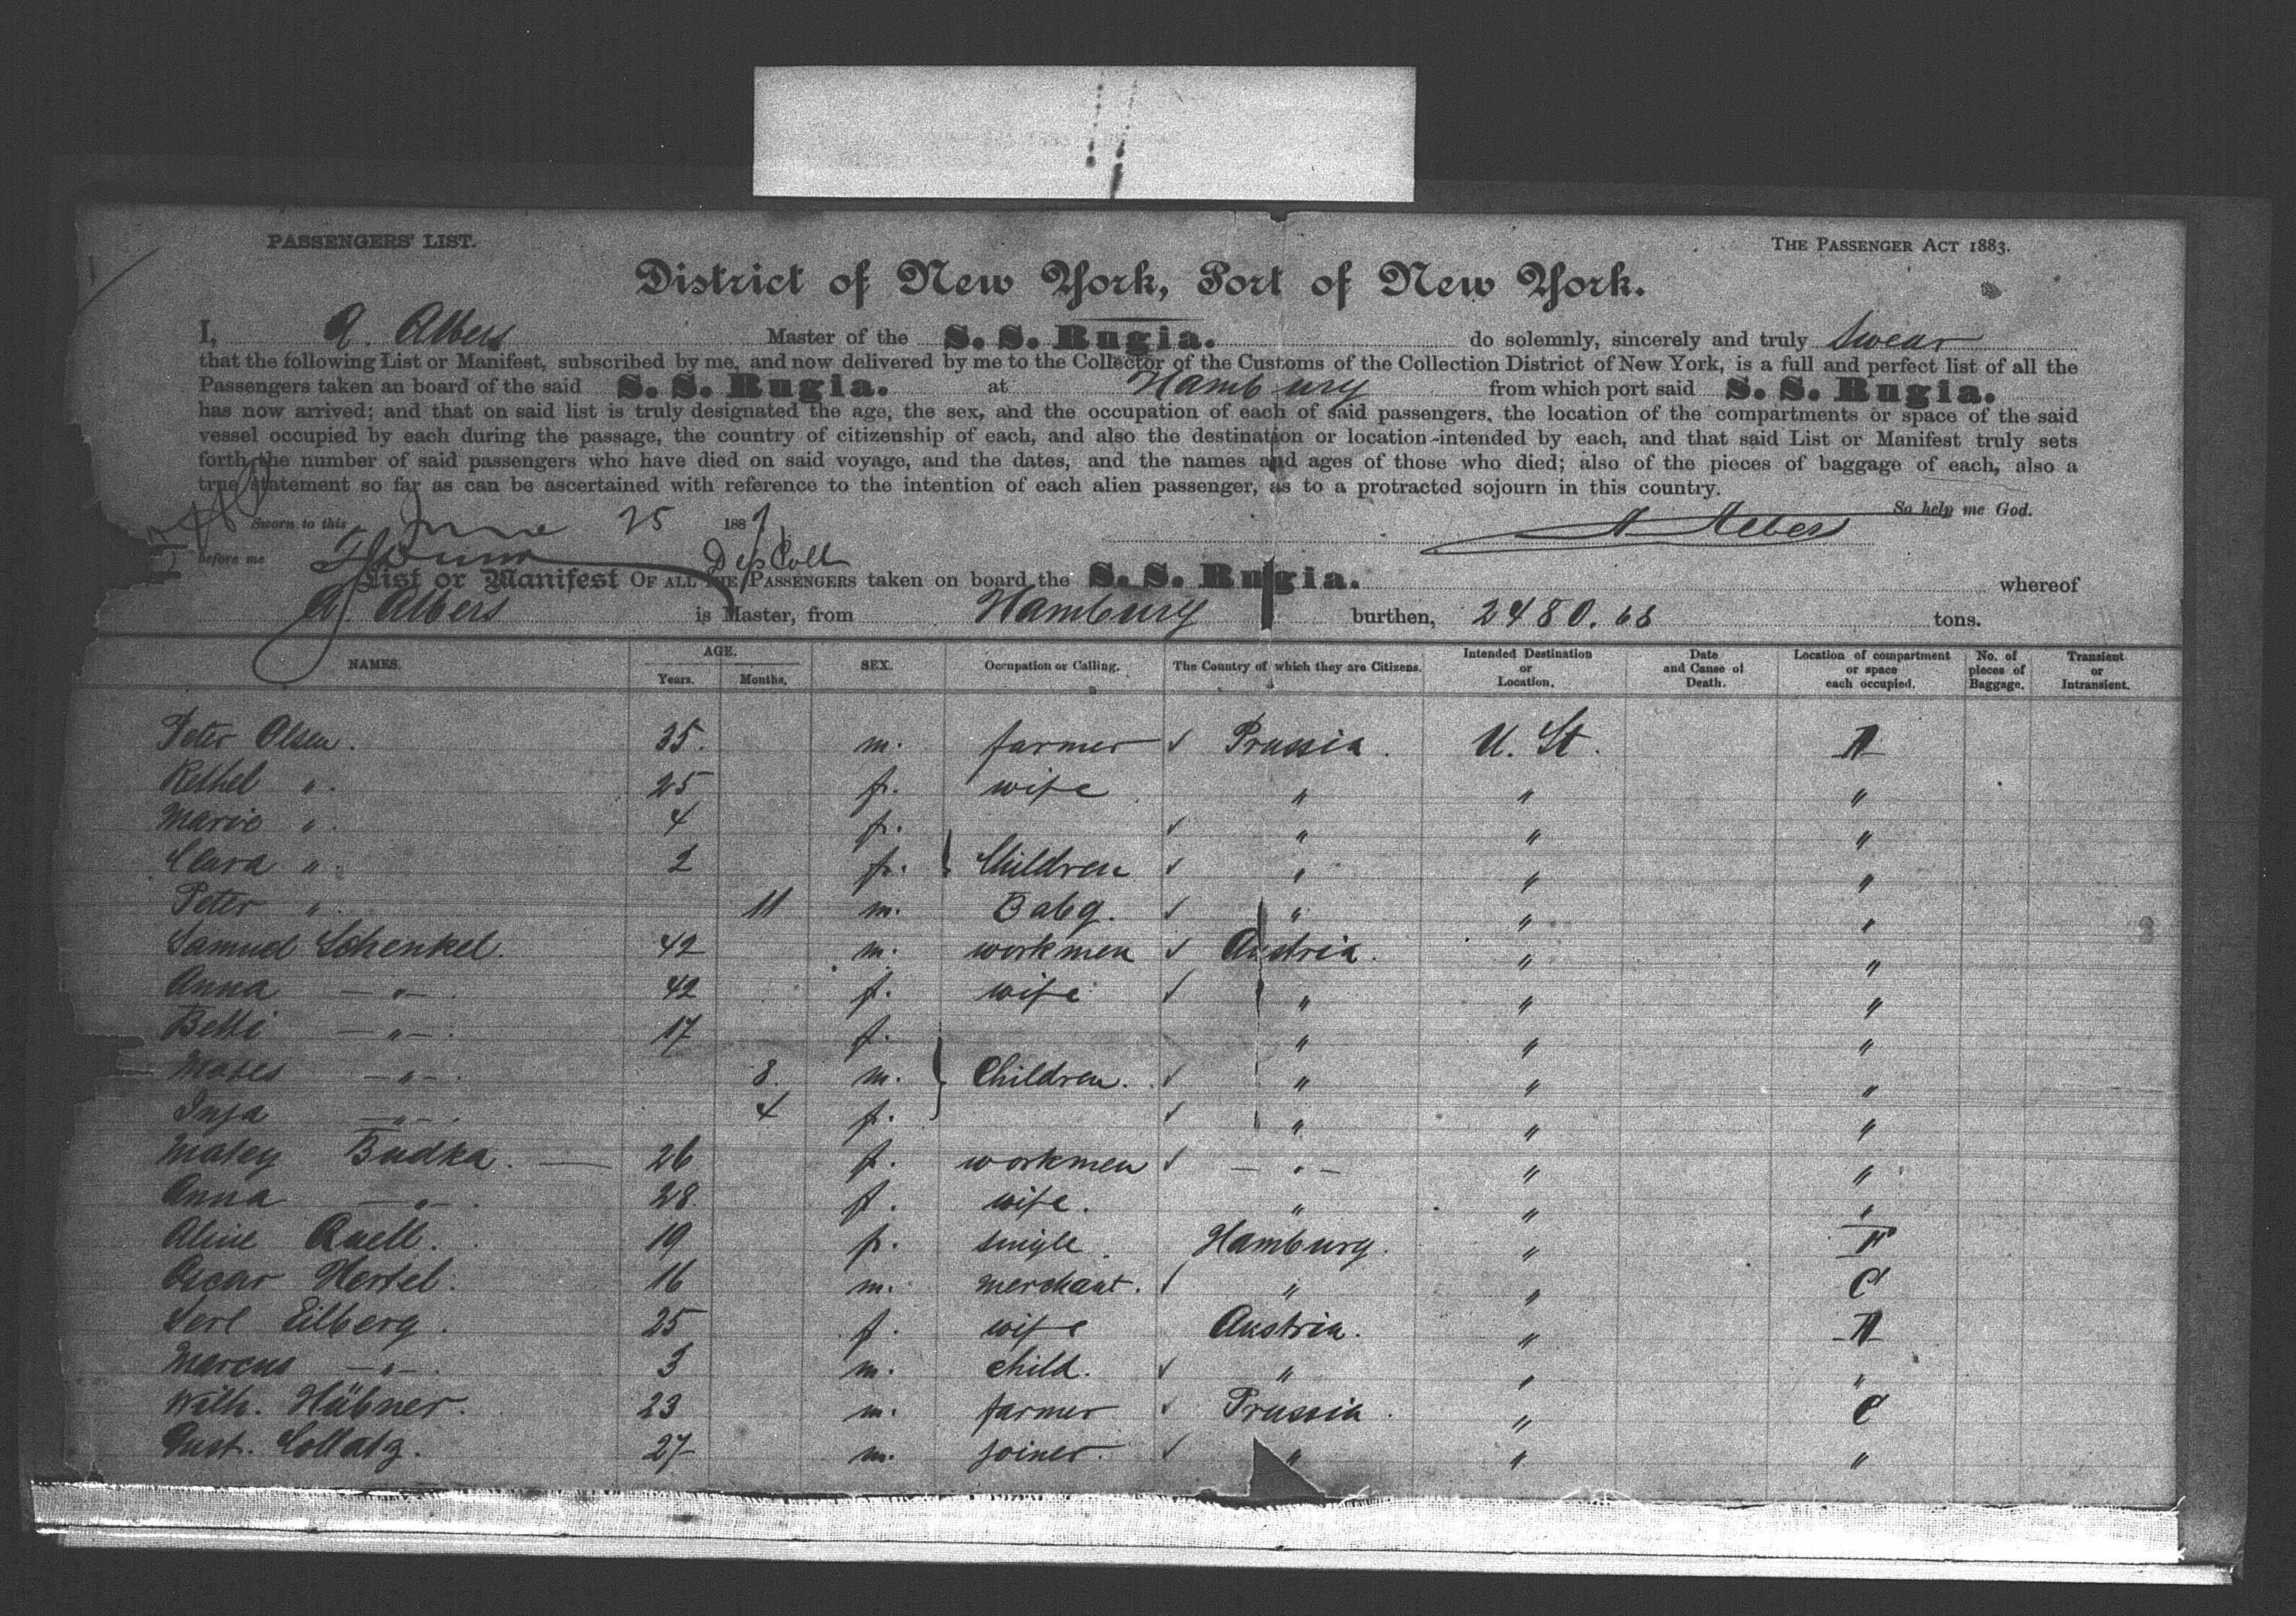 PASSENGERS' LIST.
THE PASSENGER ACT 1883.
District of New York, Port of New York.
I, A. Albers Master of the S. S. Rugia. do solemnly, sincerely and truly swear
that the following List or Manifest, subscribed by me, and now delivered by me to the Collector of the Customs of the Collection District of New York, is a full and perfect list of all the
Passengers taken an board of the said S. S. Rugia. at Hamburg from which port said S. S. Rugia.
has now arrived; and that on said list is truly designated the age, the sex, and the occupation of each of said passengers, the location of the compartments or space of the said
vessel occupied by each during the passage, the country of citizenship of each, and also the destination or location intended by each, and that said List or Manifest truly sets
forth the number of said passengers who have died on said voyage, and the dates, and the names and ages of those who died; also of the pieces of baggage of each, also a
true statement so far as can be ascertained with reference to the intention of each alien passenger, as to a protracted sojourn in this country.
Sworn to this June 25 1887 So help me God.
before me Dep Coll A Albers
List or Manifest OF ALL THE PASSENGERS taken on board the S. S. Rugia. whereof
A. Albers is Master, from Hamburg burthen, 2480.68 tons.
NAMES. AGE. Years. Months. SEX. Occupation or Calling. The Country of which they are Citizens. Intended Destination or Location. Date and Cause of Death. Location of compartment or space each occupied. No. of pieces of Baggage. Transient or Intransient.
Peter Olsen. 35. m. farmer ✓ Prussia. U. St.
Kethel ". 25 f. wife " " "
Marie ". 4 f. ✓ " " "
Clara ". 2 f. } Children ✓ " " "
Peter ". 11 m. Baby. ✓ " " "
Samuel Schenkel. 42 m. workmen ✓ Austria. " "
Anna —"—. 42 f. wife ✓ " " "
Betti —"—. 17 f. " " "
Moses —"—. 8. m. } Children. ✓ " " "
—"—. 4 f. ✓ " " "
Budka. — 26 f. workmen ✓ —"— " "
Anna —"—. 28. f. wife. " " "
Aline 19 f. single. Hamburg. "
Oscar Hertel. 16 m. merchant. ✓ " " C
Eilberg. 25 f. wife Austria. "
Marcus —"—. 3 m. child. ✓ " " "
Wilh. Hübner. 23 m. farmer ✓ Prussia. " C
Gust. Collatz. 27 m. joiner. ✓ " " "